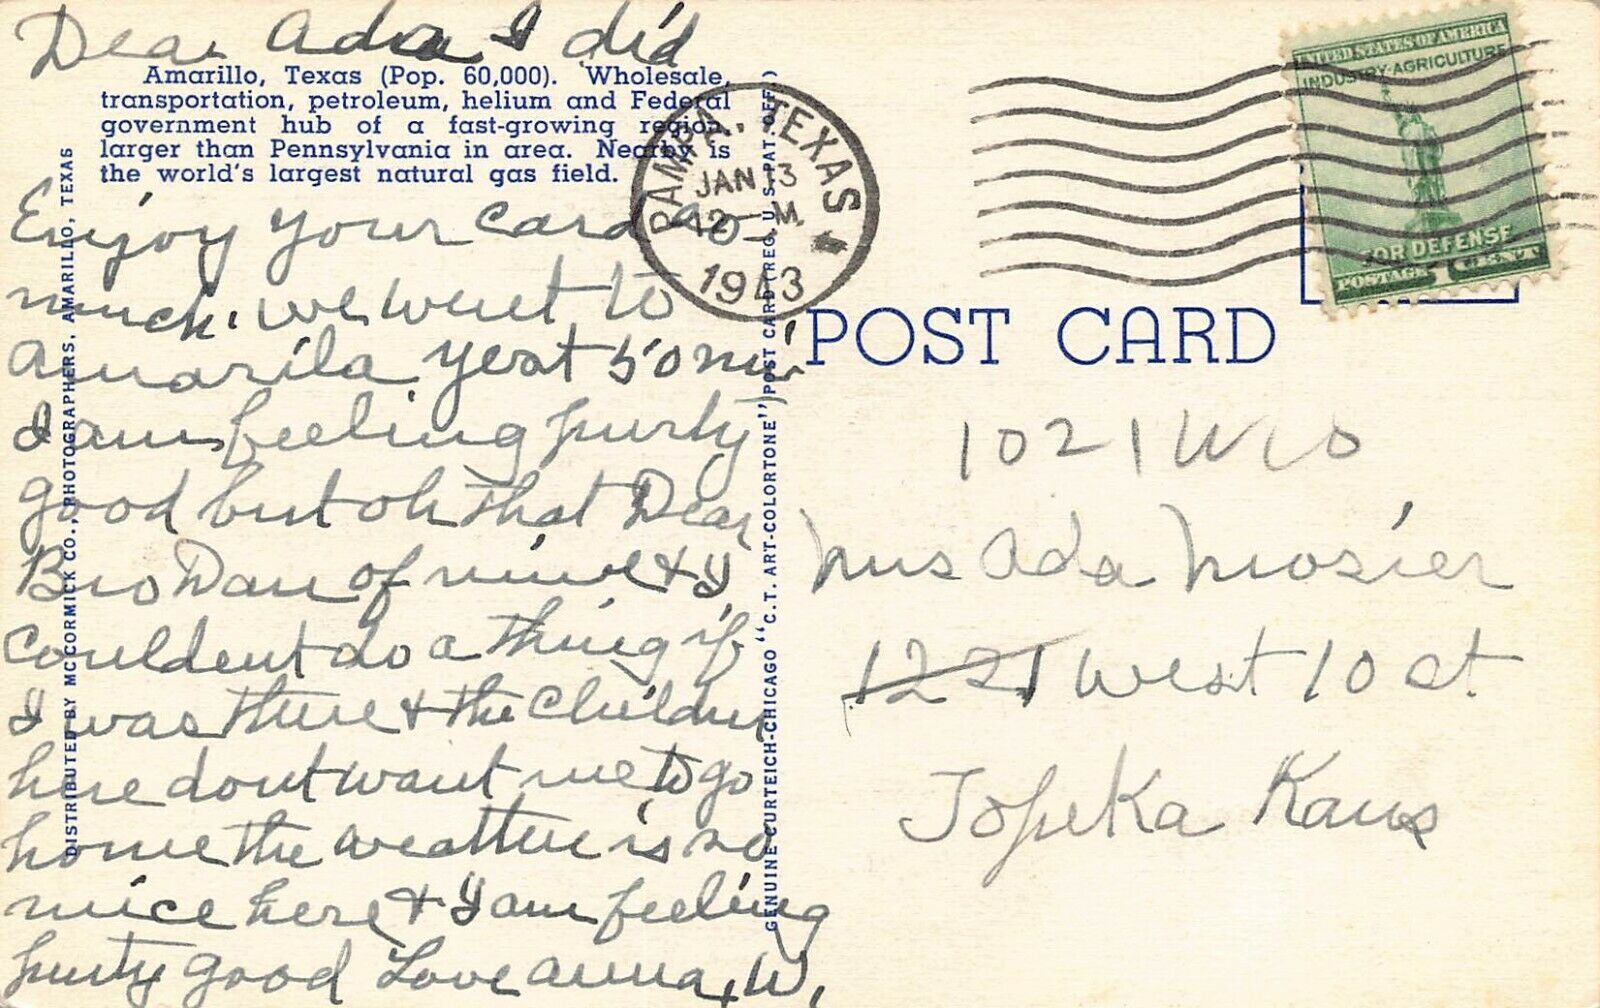 Dear Ada I did
Amarillo, Texas (Pop. 60,000). Wholesale,
transportation, petroleum, helium and Federal
government hub of a fast-growing region,
larger than Pennsylvania in area. Nearby is
the world's largest natural gas field.
Enjoy your card so
much. we went to
Amarila yest 50 mi
I am feeling purty
good but oh that Dear
Bro Dan of mine & I
couldent do a thing if
I was there & the children
here dont want me to go
home the weather is so
nice here & I am feeling
purty good Love Anna, W,
DISTRIBUTED BY McCORMICK CO., PHOTOGRAPHERS, AMARILLO, TEXAS
GENUINE CURTEICH-CHICAGO "C.T. ART-COLORTONE" POST CARD (REG. U.S. PAT. OFF.)
PAMPA, TEXAS
JAN 13
12 - M
1943
UNITED STATES OF AMERICA
INDUSTRY-AGRICULTURE
FOR DEFENSE
POSTAGE 1 CENT
POST CARD
1021 W 10
Mrs Ada Mosier
1221 West 10 st
Topeka Kans